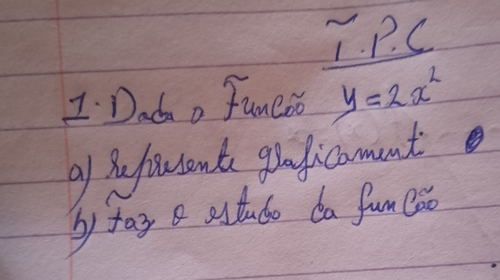 T.P.C
1. Dada o Função y = 2x²
a) represente graficamenti
b) Faz o estudo da função